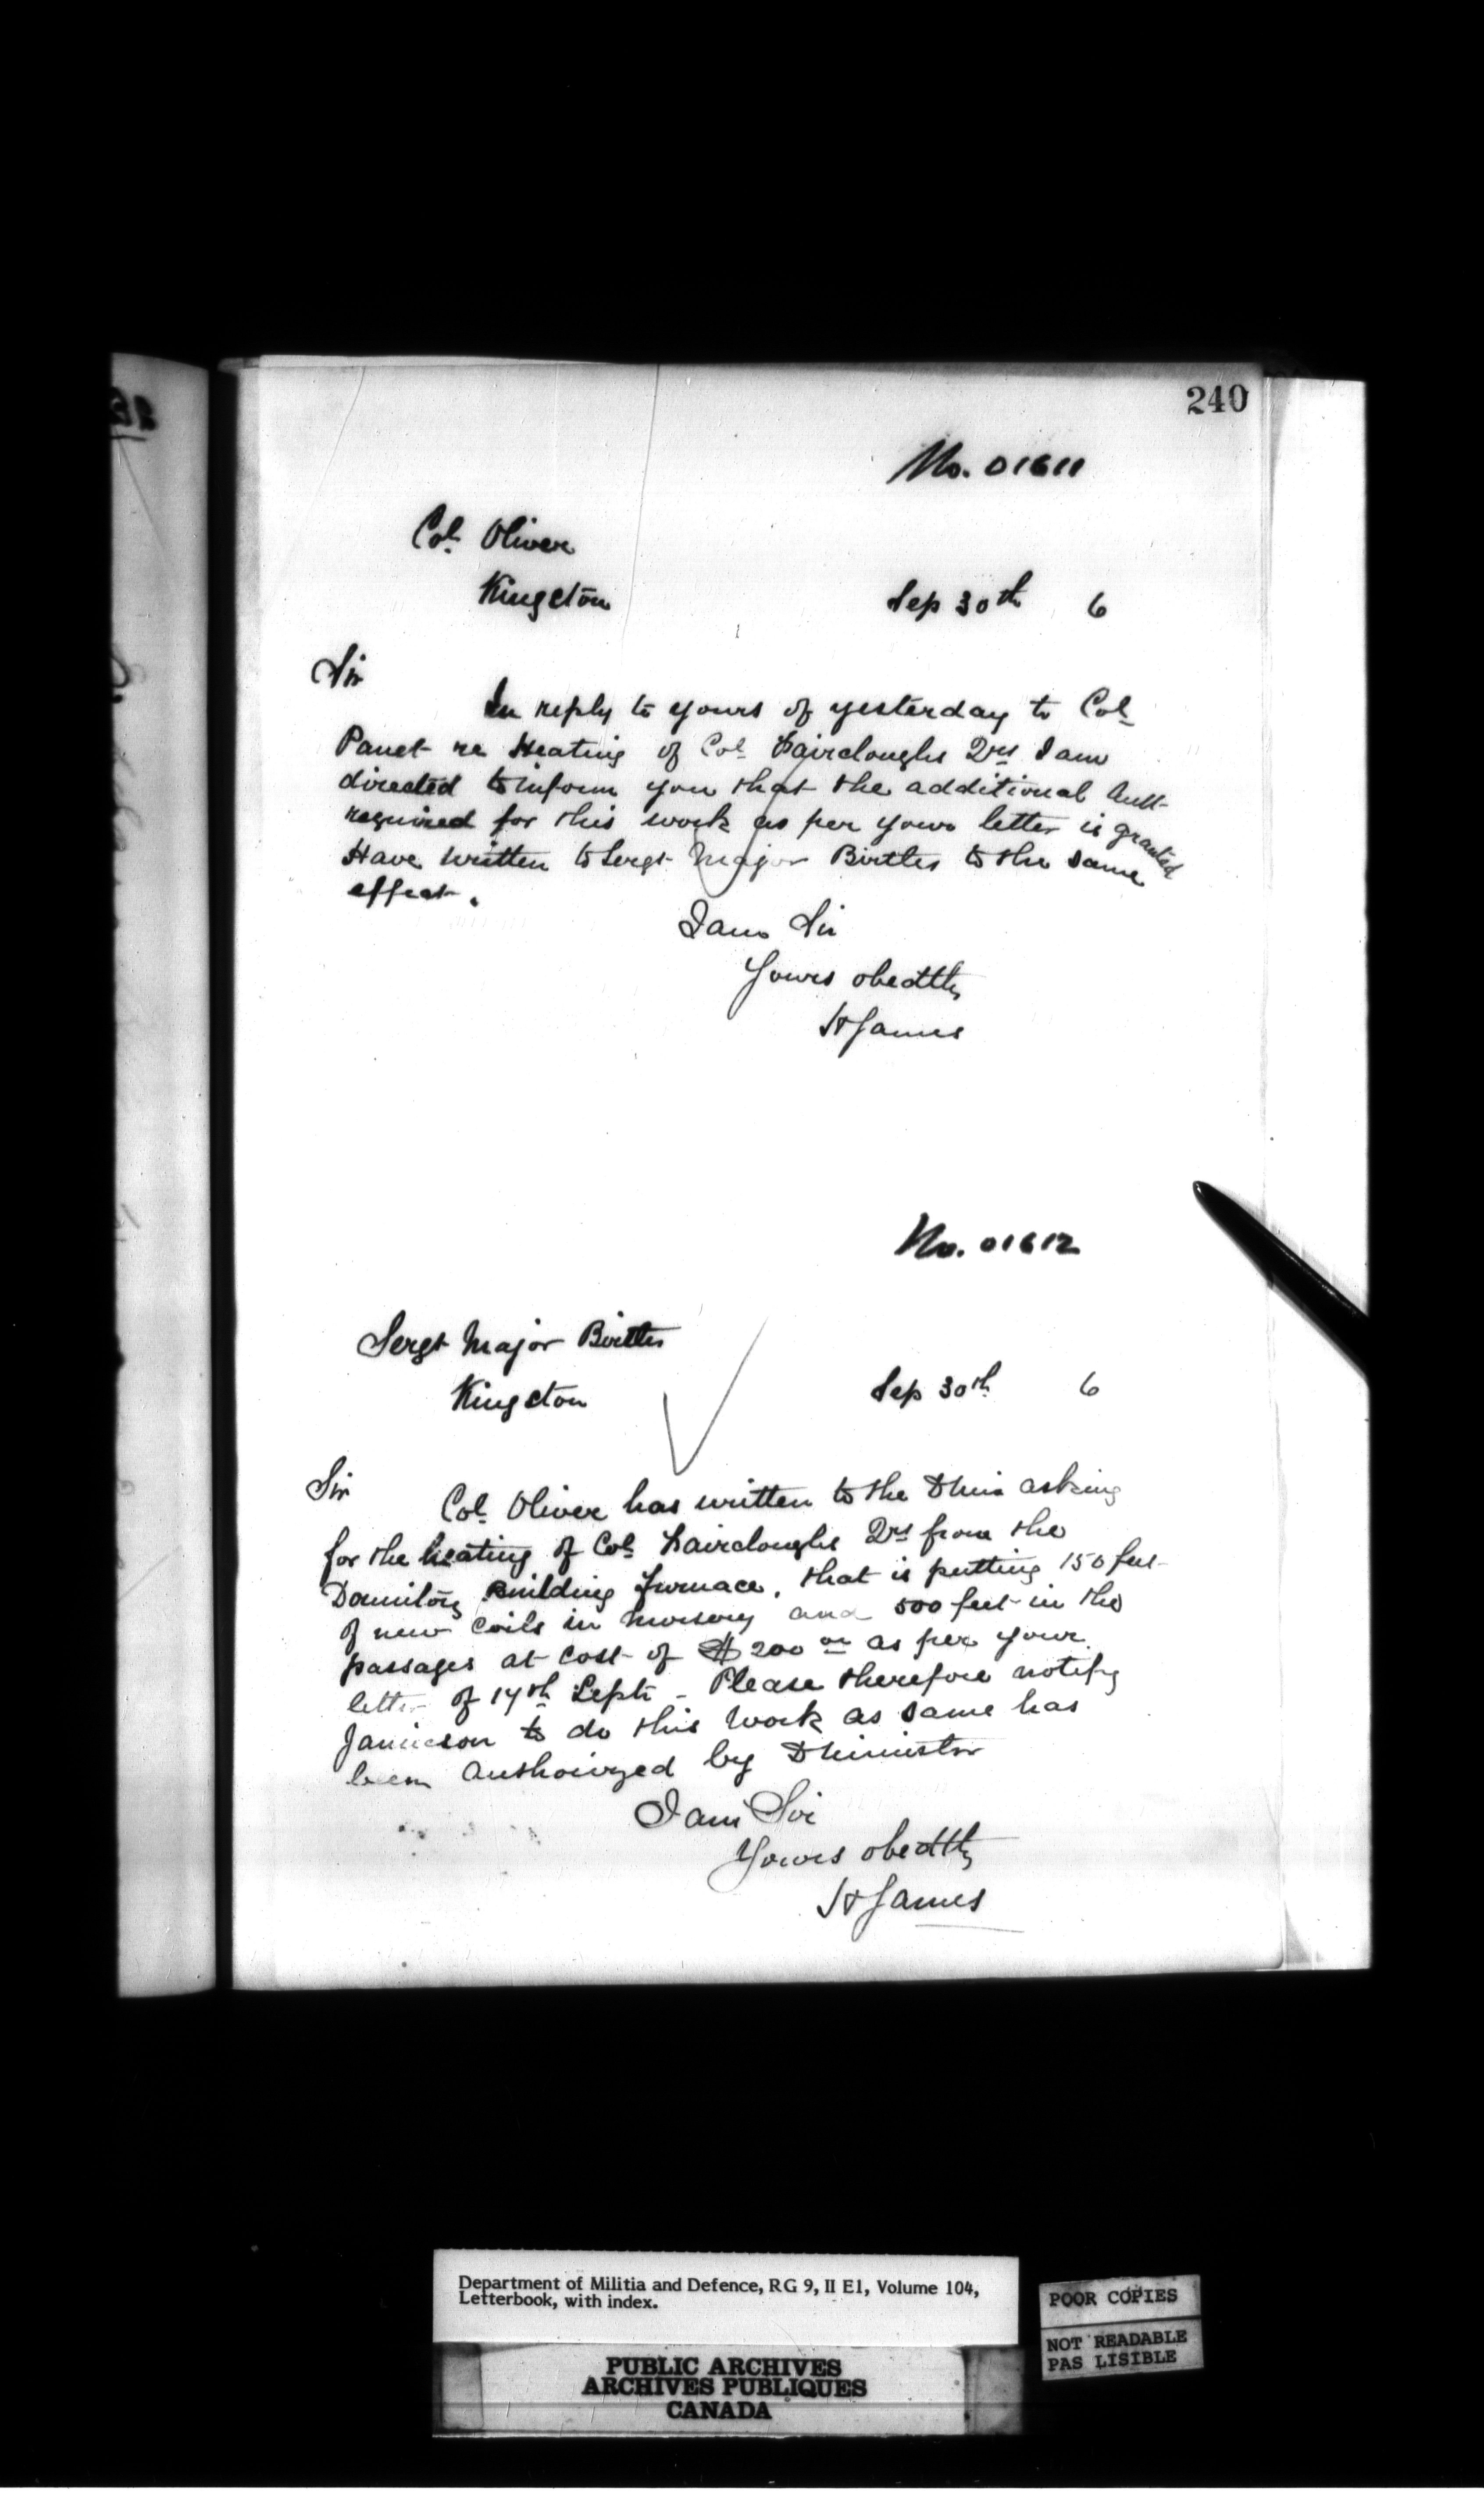 240
No. 01611
Col. Oliver
Kingston
Sep 30th 6
Sir
In reply to yours of yesterday to Col
Panet re Heating of Col Faircloughs Qrs I am
directed to inform you that the additional Amt
required for this work as per your letter is granted
Have written to Sergt Major Birtles to the same
effect.
I am Sir
Yours obedtly
H James
No. 01612
Sergt Major Birtles
Kingston
Sep 30th 6
Sir
Col. Oliver has written to the DMin asking
for the heating of Col Faircloughs Qrs from the
Dormitory Building furnace, that is putting 150 feet
of new coils in nursery and 500 feet in the
passages at cost of $200 00 as per your
letter of 14th Sept - Please therefore notify
Jamieson to do this work as same has
been authoirzed by DMinister
I am Sir
Yours obedtly
H James
Department of Militia and Defence, RG 9, II E1, Volume 104,
Letterbook, with index.
PUBLIC ARCHIVES
ARCHIVES PUBLIQUES
CANADA
POOR COPIES
NOT READABLE
PAS LISIBLE